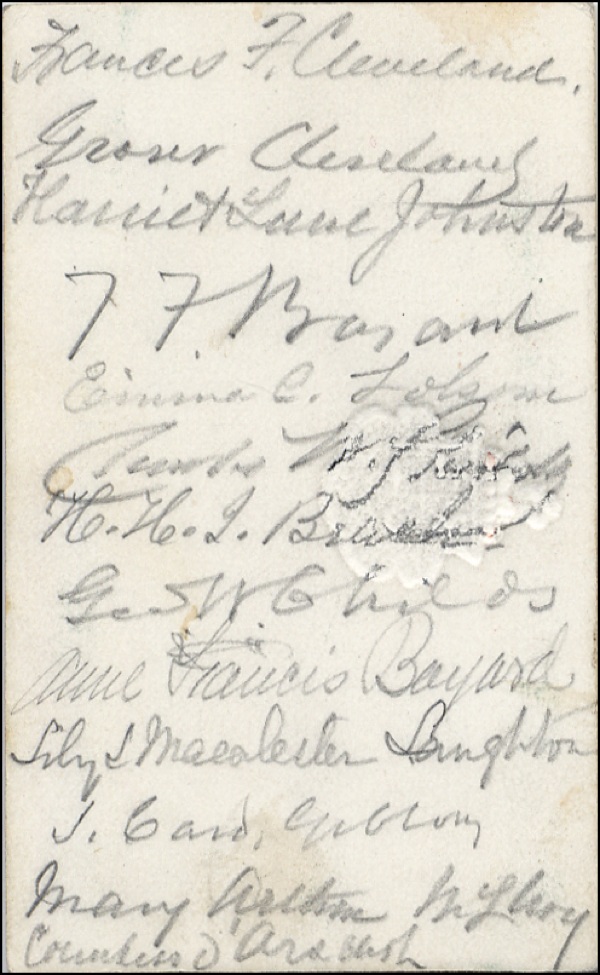 Frances F. Cleveland.
Grover Cleveland
Harriet Lane Johnston
T F Bayard
Emma C. Folsom
H. H. J.
Geo W Childs
Anne Francis Bayard
Lily L Macalester Laughton
J. Card. Gibbons
Mary Arthur McElroy
Countess D'